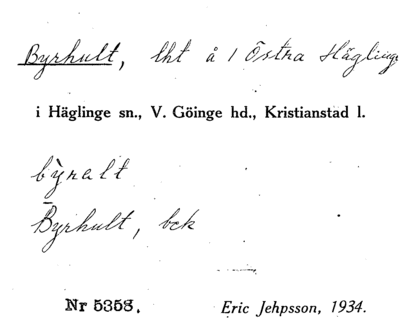 Byrhult, lht å 1 Östra Häglinge
i Häglinge sn., V. Göinge hd., Kristianstad l.
bẏralt
Byrhult, bck
Nr 5353.
Eric Jehpsson, 1934.